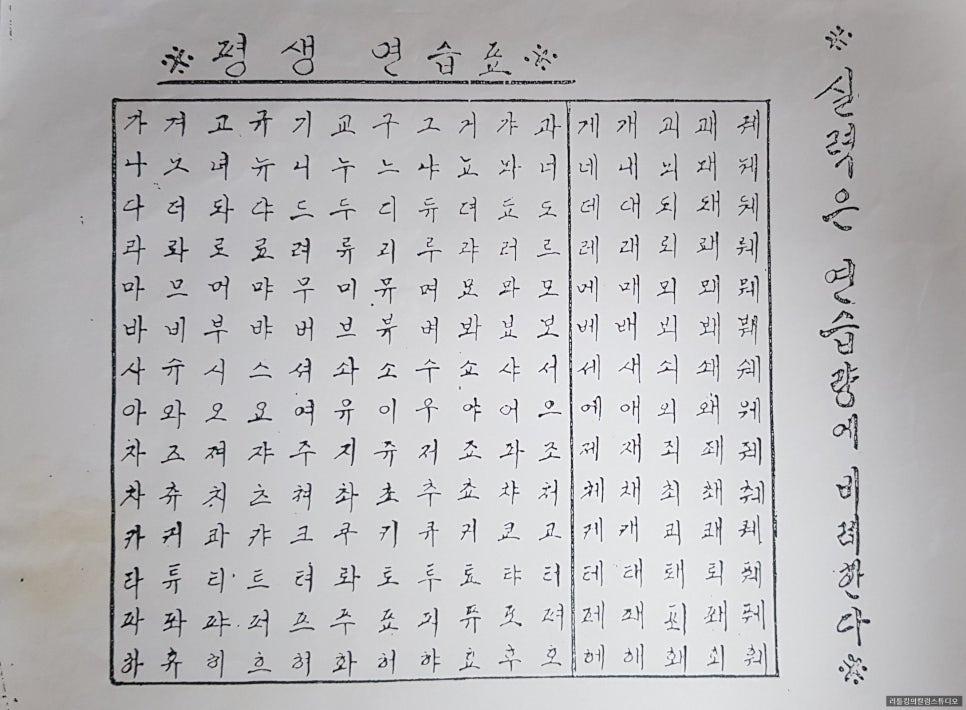 ※ 평생 연습표 ※
가 겨 고 규 기 교 구 그 거 갸 과 게 개 괴 괘 궤
나 노 녀 뉴 니 누 느 냐 뇨 놔 너 네 내 뇌 놰 눼
다 더 돠 댜 드 두 디 듀 뎌 됴 도 데 대 되 돼 뒈
라 롸 로 료 려 류 리 루 랴 러 르 레 래 뢰 뢔 뤠
마 므 머 먀 무 미 뮤 며 묘 뫄 모 메 매 뫼 뫠 뭬
바 비 부 뱌 버 브 뷰 벼 봐 뵤 보 베 배 뵈 봬 붸
사 슈 시 스 셔 솨 소 수 쇼 샤 서 세 새 쇠 쇄 쉐
아 와 오 요 여 유 이 우 야 어 으 에 애 외 왜 웨
자 즈 져 쟈 주 지 쥬 저 죠 좌 조 제 재 죄 좨 줴
차 츄 치 츠 쳐 촤 초 추 쵸 챠 처 체 채 최 쵀 췌
카 커 콰 캬 크 쿠 키 큐 켜 쿄 코 케 캐 쾨 쾌 퀘
타 튜 티 트 텨 톼 토 투 툐 탸 터 테 태 퇘 퇴 퉤
파 퐈 퍄 퍼 프 푸 표 피 퓨 포 펴 페 패 푀 퐤 풰
하 휴 히 흐 혀 화 허 햐 효 후 호 헤 해 홰 회 훼
※ 실력은 연습량에 비례한다 ※
리틀킹의컬럼스튜디오